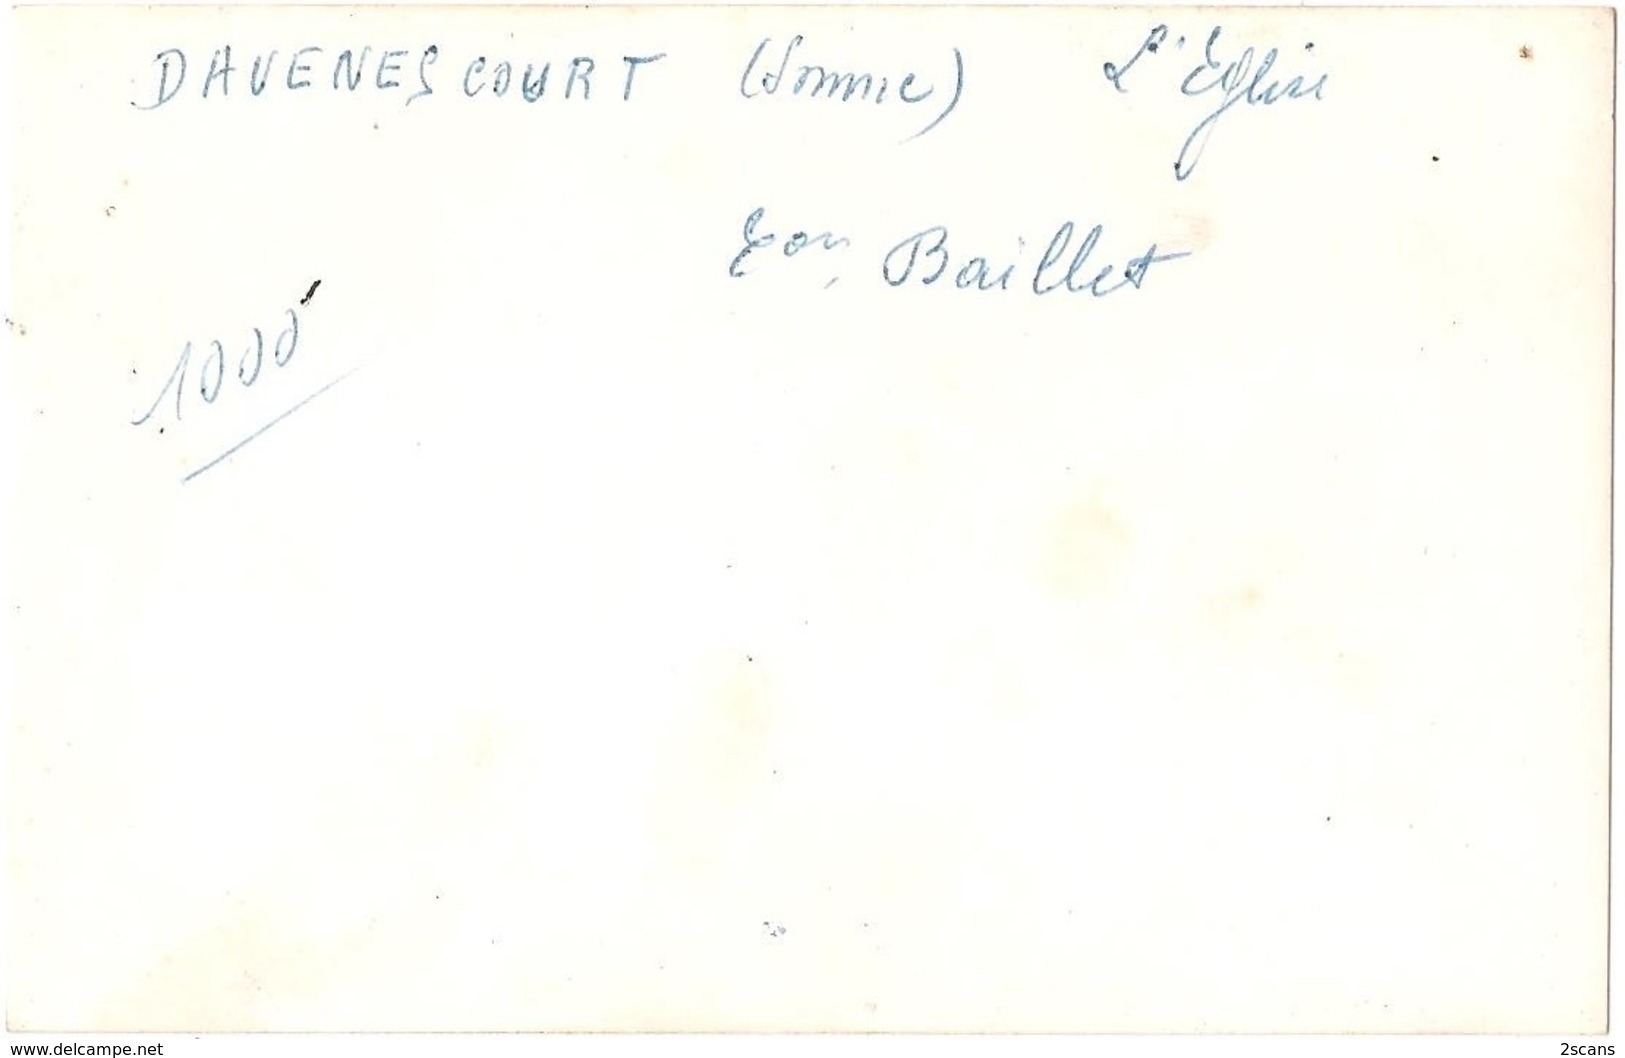 DAVENESCOURT (Somme) L'Eglise
Eon, Baillet
1000
www.delcampe.net
2scans